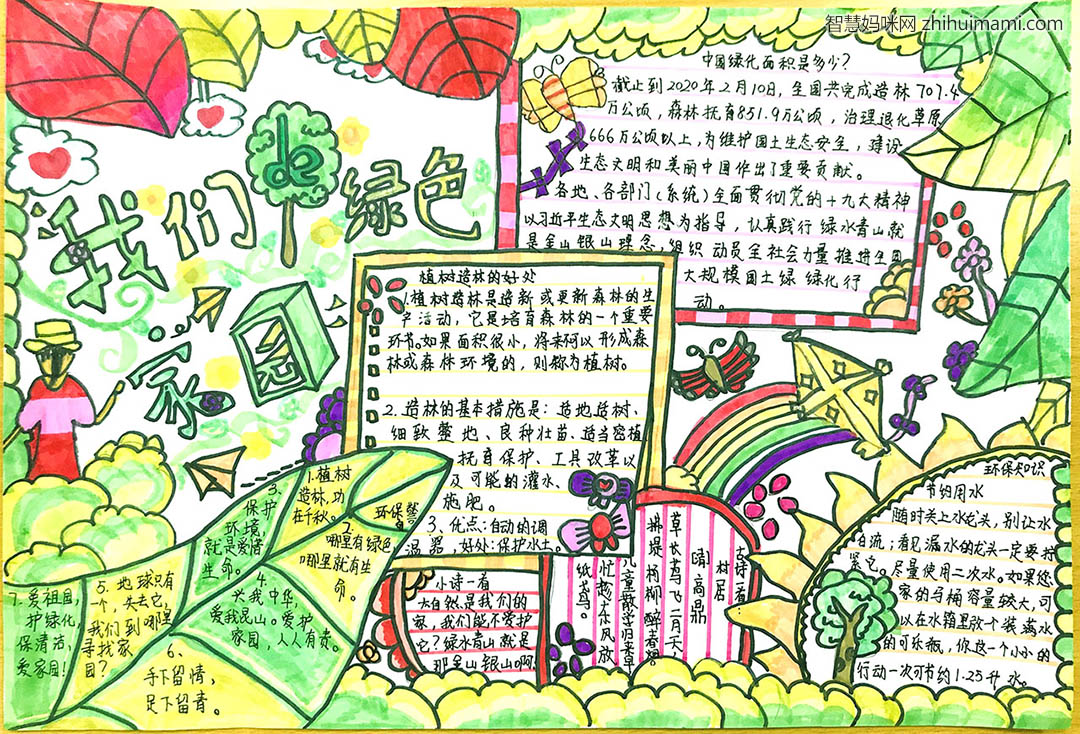 智慧妈咪网 zhihuimami.com
我们de绿色
家园
中国绿化面积是多少?
截止到2020年2月10日,全国共完成造林707.4
万公顷,森林抚育851.9万公顷,治理退化草原
666万公顷以上,为维护国土生态安全,建设
生态文明和美丽中国作出了重要贡献。
各地、各部门(系统)全面贯彻党的十九大精神
以习近平生态文明思想为指导,认真践行绿水青山就
是金山银山理念、组织动员全社会力量推进全国
大规模国土绿绿化行
动。
植树造林的好处
1.植树造林是造新或更新森林的生
产活动,它是培育森林的一个重要
环节。如果面积很小,将来可以形成森
林或森林环境的,则称为植树。
2.造林的基本措施是:适地适树、
细致整地、良种壮苗、适当密植
抚育保护、工具改革以
及可能的灌水、
施肥。
3、优点:自动的调
温器,好处:保护水土。
环保
1.植树
造林,功
在千秋。
2.
哪里有绿色
哪里就有生
命。
3.
保护
环境,
就是爱惜
生命。
4.
兴我中华,
爱我昆山。爱护
家园,人人有责。
5.地球只有
一个,失去它,
我们到哪里
寻找家
园?
6.
手下留情,
足下留青。
7.爱祖国,
护绿化,
保清洁,
爱家园!
小诗一有
大自然是我们的
家,我们能不爱护
它?绿水青山就是
那金山银山啊
古诗一有
村居
清高鼎
草长莺飞二月天,
拂堤杨柳醉春烟。
儿童散学归来早
忙趁东风放
纸鸢。
环保知识
节约用水
随时关上水龙头,别让水
白流;看见漏水的龙头一定要拧
紧它。尽量使用二次水。如果您
家的马桶容量较大,可
以在水箱里放个装满水
的可乐瓶,你这一个小小的
行动一次可节约1.25升水。